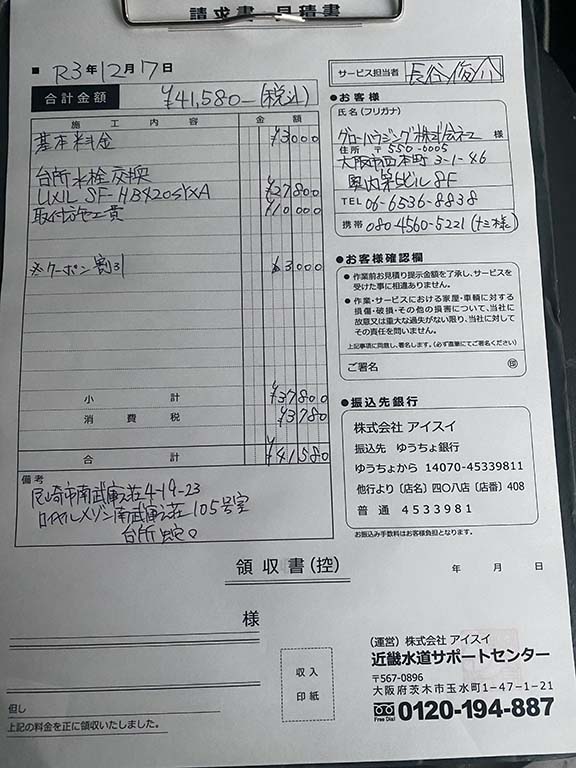 請求書・見積書
■ R3年12月17日
合計金額 ¥41,580-(税込)
サービス担当者 長谷 俊介
施工内容 金額
基本料金 ¥3000
台所水栓交換
LIXIL SF-HB420SYXA ¥27800
取付施工費 ¥10000
※クーポン割引 ¥3000
小計 ¥37800
消費税 ¥3780
合計 ¥41580
備考
尼崎市南武庫之荘4-19-23
ロイヤルメゾン南武庫之荘105号室
台所
●お客様
氏名(フリガナ)
グローハウジング株式会社 様
住所 〒550-0005
大阪市西本町3-1-46
第5ビル8F
TEL 06-6536-8838
携帯 080-4560-5221
●お客様確認欄
● 作業前お見積り提示金額を了承し、サービスを
受けた事に相違ありません。
● 作業・サービスにおける家屋・車輌に対する
損傷・破損・その他の損害について、当社に
故意又は重大な過失がない限り、当社に対して
その責任を問いません。
上記事項に同意し、署名します。(必ず直筆にてご署名ください)
ご署名 ㊞
●振込先銀行
株式会社 アイスイ
振込先 ゆうちょ銀行
ゆうちょから 14070-45339811
他行より〔店名〕四〇八店〔店番〕408
普通 4533981
お振込み手数料はお客様負担となります。
領収書(控)
年 月 日
様
収入
印紙
但し
上記の料金を正に領収いたしました。
(運営)株式会社 アイスイ
近畿水道サポートセンター
〒567-0896
大阪府茨木市玉水町1-47-1-21
Free Dial 0120-194-887